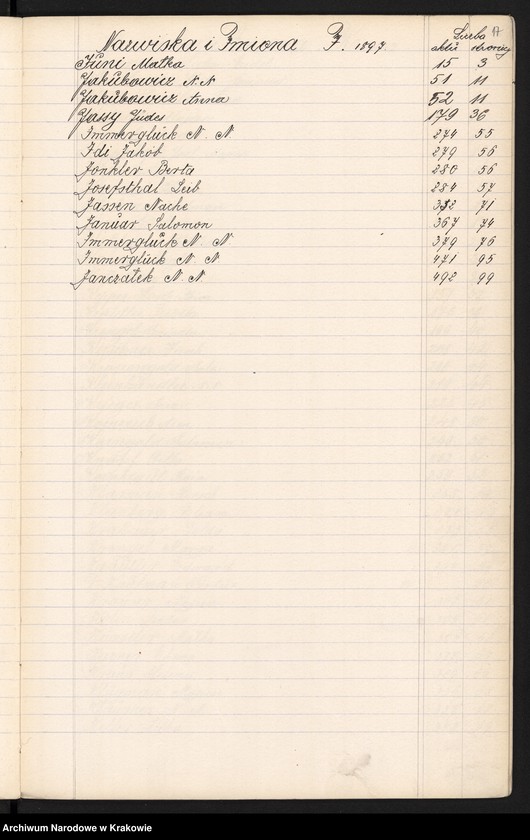 Nazwiska i Imiona J. 1897 Liczba 17
aktu stronicy
Juni Matka 15 3
Jakubowicz N. N. 51 11
Jakubowicz Anna 52 11
Jassy Judes 179 36
Immerglück N. N. 274 55
Idi Jakób 279 56
Jonkler Berta 280 56
Josefsthal Leib 284 57
Jassen Nache 71
Januar Salomon 367 74
Immerglück N. N. 379 76
Immerglück N. N. 471 95
Janczatek N. N. 492 99
Archiwum Narodowe w Krakowie